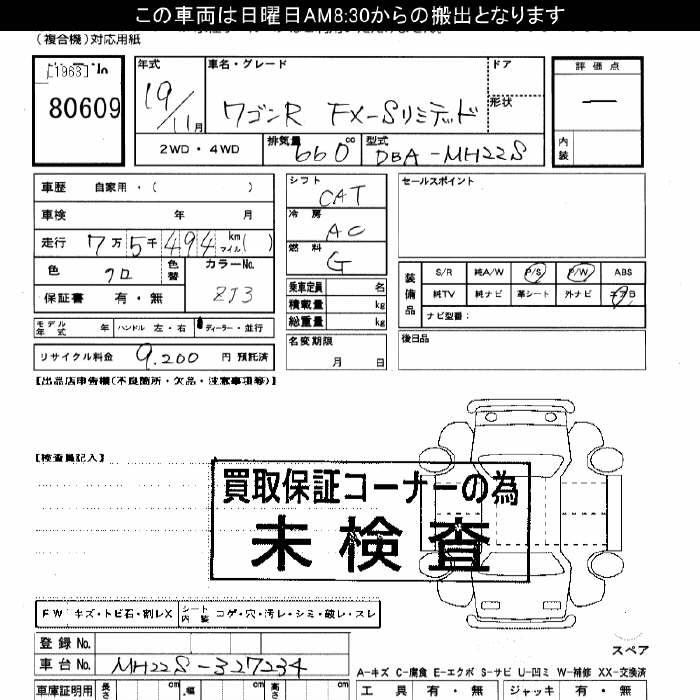 この車両は日曜日AM8:30からの搬出となります
(複合機)対応用紙
[1963]
80609
年式
19/11月
車名・グレード
ワゴンR FX-Sリミテッド
ドア
形状
評価点
—
内装
2WD・4WD
排気量 660 cc
型式 DBA-MH22S
車歴 自家用・( )
車検 年 月
走行 7万5千494 km マイル( )
色 クロ
色替
カラーNo. ZJ3
保証書 有・無
シフト CAT
冷房 AC
燃料 G
乗車定員 名
積載量 kg
総重量 kg
名変期限
月 日
セールスポイント
装備品
S/R 純A/W P/S P/W ABS
純TV 純ナビ 革シート 外ナビ エアB
ナビ型番:
後日品
モデル年式 年 ハンドル 左・右 ディーラー・並行
リサイクル料金 9.200 円 預託済
【出品店申告欄(不良箇所・欠品・注意事項等)】
【検査員記入】
買取保証コーナーの為
未検査
FW キズ・トビ石・割レX
シート内装 コゲ・穴・汚レ・シミ・破レ・スレ
登録No.
車台No. MH22S-327234
スペア
A-キズ C-腐食 E-エクボ S-サビ U-凹ミ W-補修 XX-交換済
車庫証明用 長さ cm 幅 cm 高さ cm
工具 有・無 ジャッキ 有・無